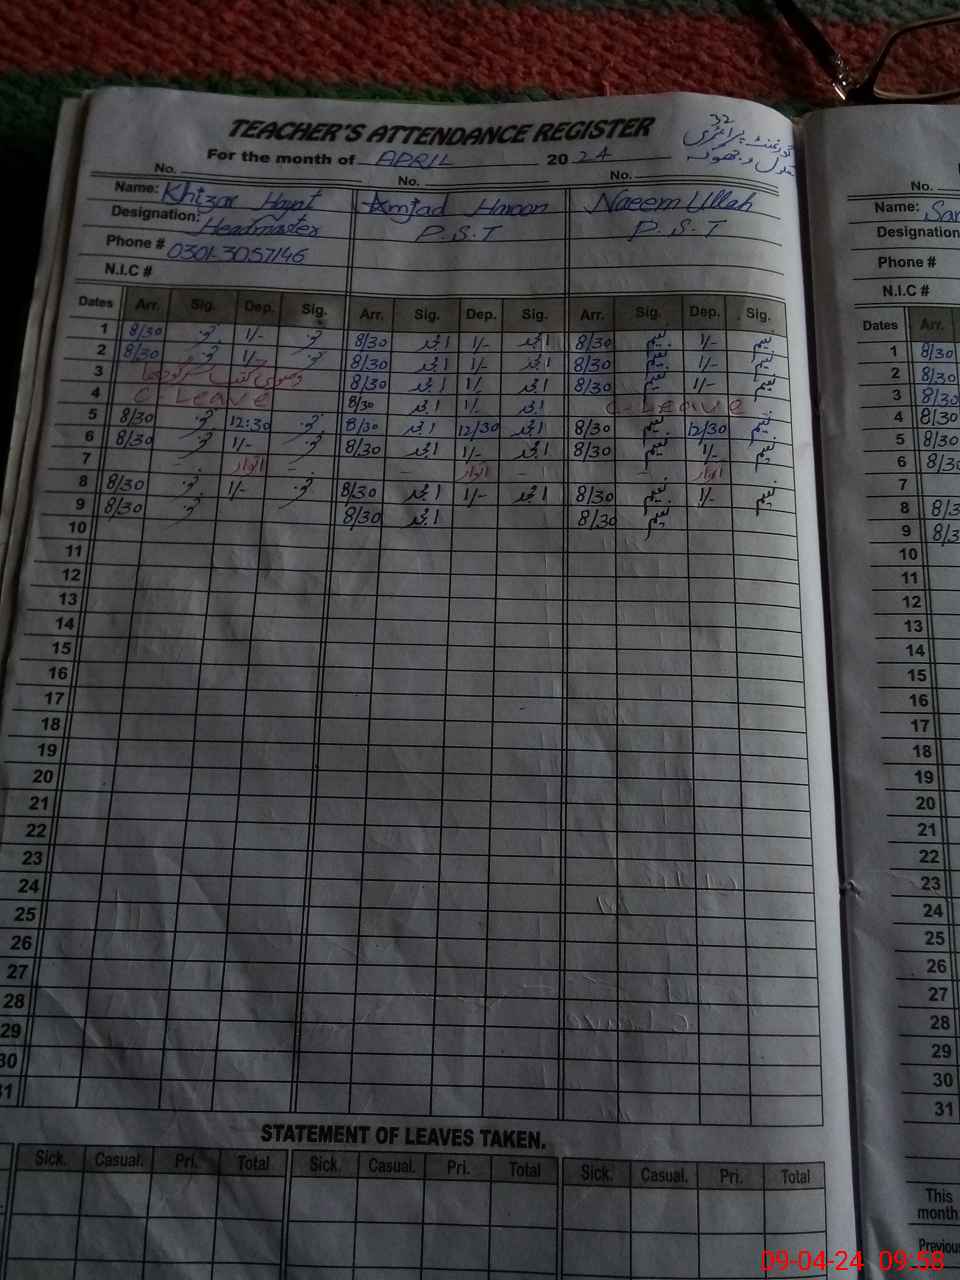 32
گورنمنٹ پرائمری
TEACHER'S ATTENDANCE REGISTER
For the month of APRIL 2024
No. No. No. No.
Name: Khizar Hayat Amjad Haroon Naeem Ullah Name: Sar
Designation: Headmaster P.S.T P.S.T Designation
Phone # 0301-3057146 Phone #
N.I.C # N.I.C #
Dates Arr. Sig. Dep. Sig. Arr. Sig. Dep. Sig. Arr. Sig. Dep. Sig. Dates Arr.
1 8/30 1/- 8/30 امجد 1/- امجد 8/30 نعیم 1/- نعیم 1 8/30
2 8/30 1/- 8/30 امجد 1/- امجد 8/30 نعیم 1/- نعیم 2 8/30
3 وصولی کتب 8/30 امجد 1/- امجد 8/30 نعیم 1/- نعیم 3 8/30
4 C-Leave 8/30 امجد 1/- امجد C-Leave 4 8/30
5 8/30 12:30 8/30 امجد 12/30 امجد 8/30 نعیم 12/30 نعیم 5 8/30
6 8/30 1/- 8/30 امجد 1/- امجد 8/30 نعیم 1/- نعیم 6 8/30
7 - اتوار - - اتوار - - اتوار 7
8 8/30 1/- 8/30 امجد 1/- امجد 8/30 نعیم 1/- نعیم 8 8/3
9 8/30 8/30 امجد 8/30 نعیم 9 8/3
10 10
11 11
12 12
13 13
14 14
15 15
16 16
17 17
18 18
19 19
20 20
21 21
22 22
23 23
24 24
25 25
26 26
27 27
28 28
29 29
30 30
31 31
STATEMENT OF LEAVES TAKEN.
Sick. Casual. Pri. Total Sick. Casual. Pri. Total Sick. Casual. Pri. Total
This
month
Previou
09-04-24 09:58